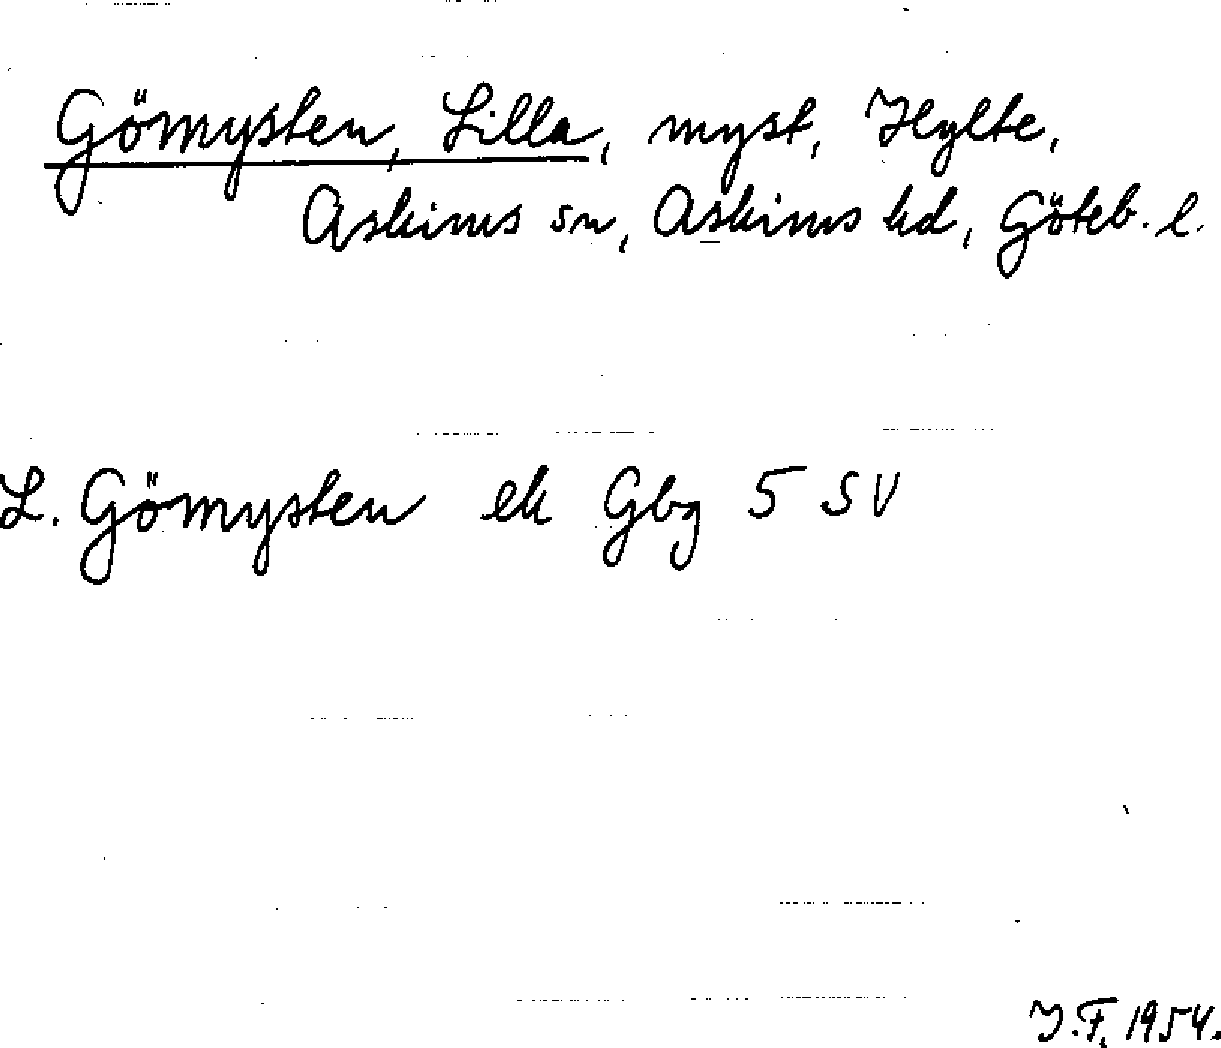 Gömysten, Lilla, myst, Hylte,
Askims sn, Askims hd, Göteb. l.
L. Gömysten ek Gbg 5 SV
J.F. 1954.